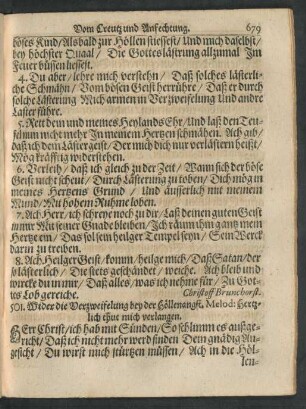 Vom Creutz und Anfechtung. 679
böses Kind/ Alsbald zur Höllen stiessest/ Und mich daselbst/
bey höchster Quaal/ Die Gotteslästrung allzumal Im
Feuer büssen liessest.
4. Du aber/ lehre mich verstehn/ Daß solches lästerli-
che Schmähn/ Vom bösen Geist herrühre/ Daß er durch
solche Lästerung Mich armen in Verzweifelung Und andre
Laster führe.
5. Rett dein und meines Heylands Ehr/ Und laß den Teu-
felmehr In meinem Hertzen schmähen. Ach gib/
daß ich dem Lästergeist/ Der mich dich nur verlästern heist/
Mög kräfftig widerstehen.
6. Verleih/ daß ich gleich zu der Zeit/ Wann sich der böse
Geist nicht scheut/ Durch Lästerung zu toben/ Dich mög in
meines Hertzens Grund/ Und äusserlich mit meinem
Mund/ Mit hohem Ruhme loben.
7. Ach Herr/ ich schreye noch zu dir/ Laß deinen guten Geist
in mir Mit seiner Gnade bleiben/ Ich räum ihm gantz mein
Hertze ein/ Das sol sein heilger Tempel seyn/ Sein Werck
darin zu treiben.
8. Ach Heilger Geist/ komm/ heilge mich/ Daß Satan/ der
so lästerlich/ Die stets geschändet/ weiche. Ach bleib und
wircke du in mir/ Daß alles/ was ich nehme für/ Zu Got-
tes Lob gereiche. Christoff Brunchorst.
Wider die Verzweifelung bey der Höllenangst. Melod: Hertz-
lich thut mich verlangen.
HErr Christ/ ich hab mit Sünden/ So schlimm es außge-
richt/ Daß ich nicht mehr werd finden Dein gnädig An-
gesicht/ Du wirst mich stürtzen müssen/ Ach in die Höl-
len-